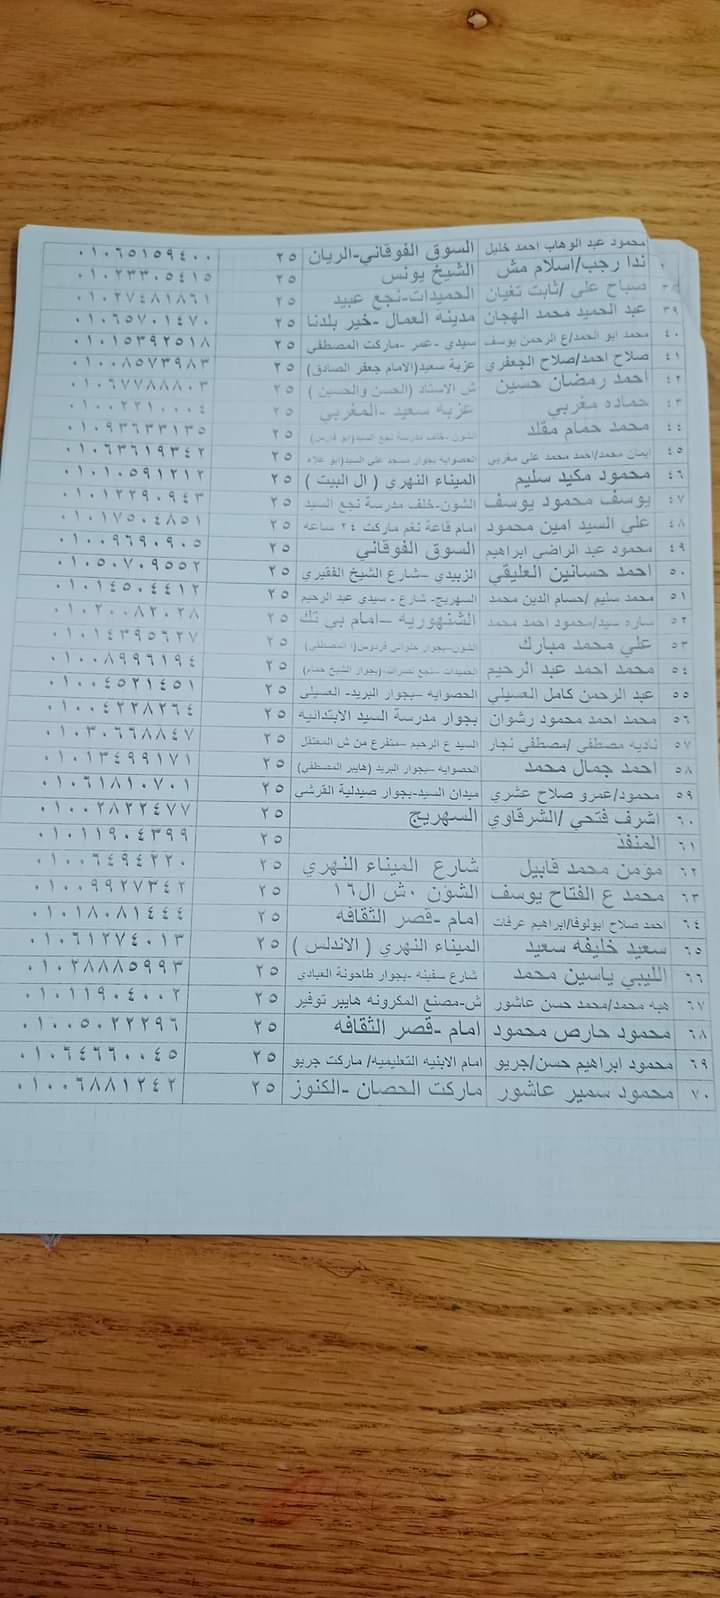 محمود عبد الوهاب احمد خليل السوق الفوقاني-الريان ٢٥ ٠١٠٦٥١٥٩٤٠٠
ندا رجب/اسلام مش الشيخ يونس ٢٥ ٠١٠٢٣٣٠٥٤١٥
٣٨ صباح علي /ثابت تغيان الحميدات-نجع عبيد ٢٥ ٠١٠٢٧٤٨١٨٦١
٣٩ عبد الحميد محمد الهجان مدينه العمال -خير بلدنا ٢٥ ٠١٠٦٥٧٠١٤٧٠
٤٠ محمد ابو الحمد/ع الرحمن يوسف سيدي -عمر -ماركت المصطفى ٢٥ ٠١٠١٥٣٩٢٥١٨
٤١ صلاح احمد/صلاح الجعفري عزبة سعيد(الامام جعفر الصادق) ٢٥ ٠١٠٠٨٥٧٣٩٨٣
٤٢ احمد رمضان حسين ش الاستاد (الحسن والحسين ) ٢٥ ٠١٠٦٧٧٨٨٨٠٣
٤٣ حماده مغربي عزبه سعيد -المغربي ٢٥ ٠١٠٠٢٢١٠٠٠٤
٤٤ محمد حمام مقلد الشون -خلف مدرسة نجع السيد(ابو فارس) ٢٥ ٠١٠٩٣٦٣٣١٣٥
٤٥ ايمان محمد/احمد محمد علي مغربي الحصوايه بجوار مسجد علي السيد(ابو علاء ٢٥ ٠١٠٦٣٦١٩٣٤٢
٤٦ محمود مكيد سليم الميناء النهري ( ال البيت ) ٢٥ ٠١٠١٠٥٩١٢١٢
٤٧ يوسف محمود يوسف الشون-خلف مدرسة نجع السيد ٢٥ ٠١٠١٢٢٩٠٩٤٣
٤٨ علي السيد امين محمود امام قاعة نغم ماركت ٢٤ ساعه ٢٥ ٠١٠١٧٥٠٤٨٥١
٤٩ محمود عبد الراضي ابراهيم السوق الفوقاني ٢٥ ٠١٠٠٩٦٩٠٩٠٥
٥٠ احمد حسانين العليقي الزبيدي -شارع الشيخ الفقيري ٢٥ ٠١٠٥٠٧٠٩٥٥٢
٥١ محمد سليم /حسام الدين محمد السهريج- شارع - سيدي عبد الرحيم ٢٥ ٠١٠١٤٥٠٤٤١٢
٥٢ ساره سيد/محمود احمد محمد الشنهوريه -امام بي تك ٢٥ ٠١٠٢٠٠٨٢٠٢٨
٥٣ علي محمد مبارك الشون-بجوار حلواني فردوس(ا المصطفى) ٢٥ ٠١٠١٤٣٩٥٦٢٧
٥٤ محمد احمد عبد الرحيم الحميدات -نجع نصرات-(بجوار الشيخ حمام) ٢٥ ٠١٠٠٨٩٩٦١٩٤
٥٥ عبد الرحمن كامل العسيلي الحصوايه -بجوار البريد- العسيلى ٢٥ ٠١٠٠٤٥٢١٤٥١
٥٦ محمد احمد محمود رشوان بجوار مدرسة السيد الابتدائيه ٢٥ ٠١٠٠٤٢٢٨٢٦٤
٥٧ ناديه مصطفى /مصطفي نجار السيد ع الرحيم -متفرع من ش المعتقل ٢٥ ٠١٠٣٠٦٦٨٨٤٧
٥٨ احمد جمال محمد الحصوايه -بجوار البريد (هايبر المصطفى) ٢٥ ٠١٠١٣٤٩٩١٧١
٥٩ محمود/عمرو صلاح عشري ميدان السيد-بجوار صيدلية القرشي ٢٥ ٠١٠٦١٨١٠٧٠١
٦٠ اشرف فتحي /الشرقاوي السهريج ٢٥ ٠١٠٠٢٨٢٢٤٧٧
٦١ المنفذ ٢٥ ٠١٠١١٩٠٤٣٩٩
٦٢ مومن محمد قابيل شارع الميناء النهري ٢٥ ٠١٠٠٦٤٩٤٢٢٠
٦٣ محمد ع الفتاح يوسف الشون ٠ش ال١٦ ٢٥ ٠١٠٠٩٩٢٧٣٤٢
٦٤ احمد صلاح ابولوفا/ابراهيم عرفات امام -قصر الثقافه ٢٥ ٠١٠١٨٠٨١٤٤٤
٦٥ سعيد خليفه سعيد الميناء النهري ( الاندلس ) ٢٥ ٠١٠٦١٢٧٤٠١٣
٦٦ الليبي ياسين محمد شارع سفينه -بجوار طاحونة العبادي ٢٥ ٠١٠٢٨٨٨٥٩٩٣
٦٧ هبه محمد/محمد حسن عاشور ش-مصنع المكرونه هايبر توفير ٢٥ ٠١٠١١٩٠٤٠٠٢
٦٨ محمود حارص محمود امام -قصر الثقافه ٢٥ ٠١٠٠٥٠٢٢٢٩٦
٦٩ محمود ابراهيم حسن/جريو امام الابنيه التعليميه/ ماركت جريو ٢٥ ٠١٠٦٤٦٦٠٠٤٥
٧٠ محمود سمير عاشور ماركت الحصان -الكنوز ٢٥ ٠١٠٠٦٨٨١٢٤٢